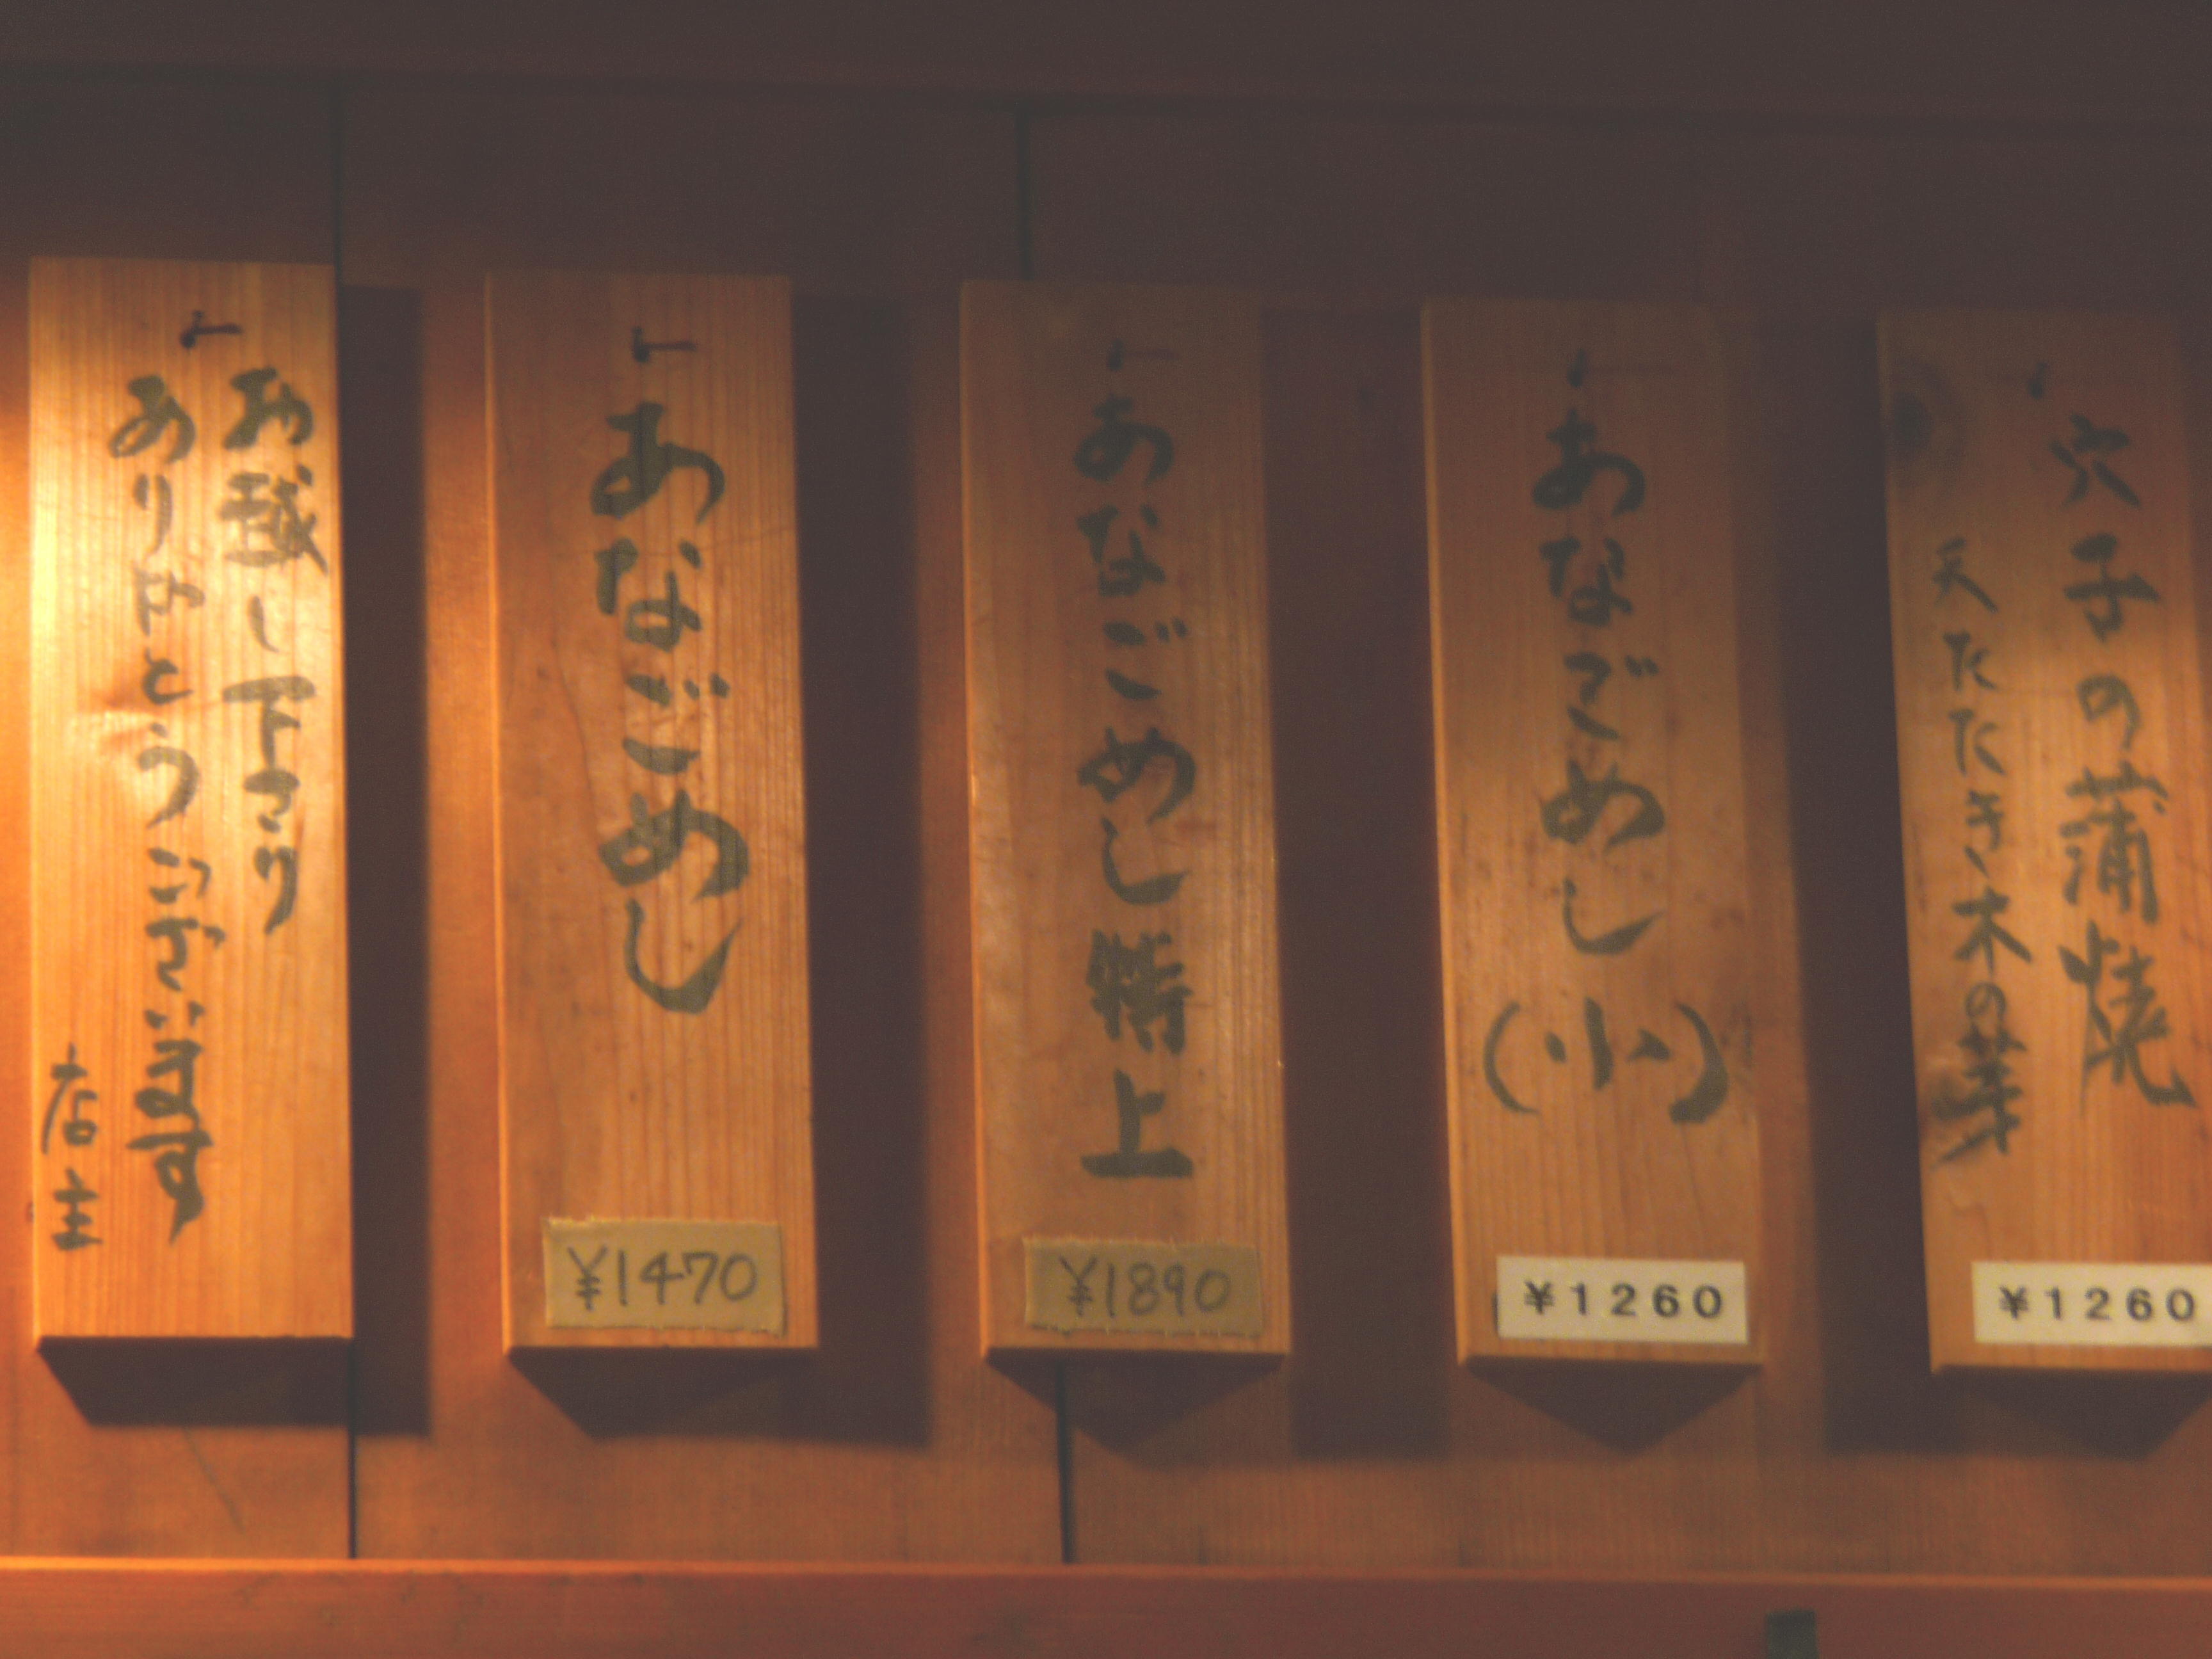 穴子の蒲焼
天たたき木の芽
¥1260
あなごめし
(小)
¥1260
あなごめし特上
¥1890
あなごめし
¥1470
お越し下さり
ありがとうございます
店主